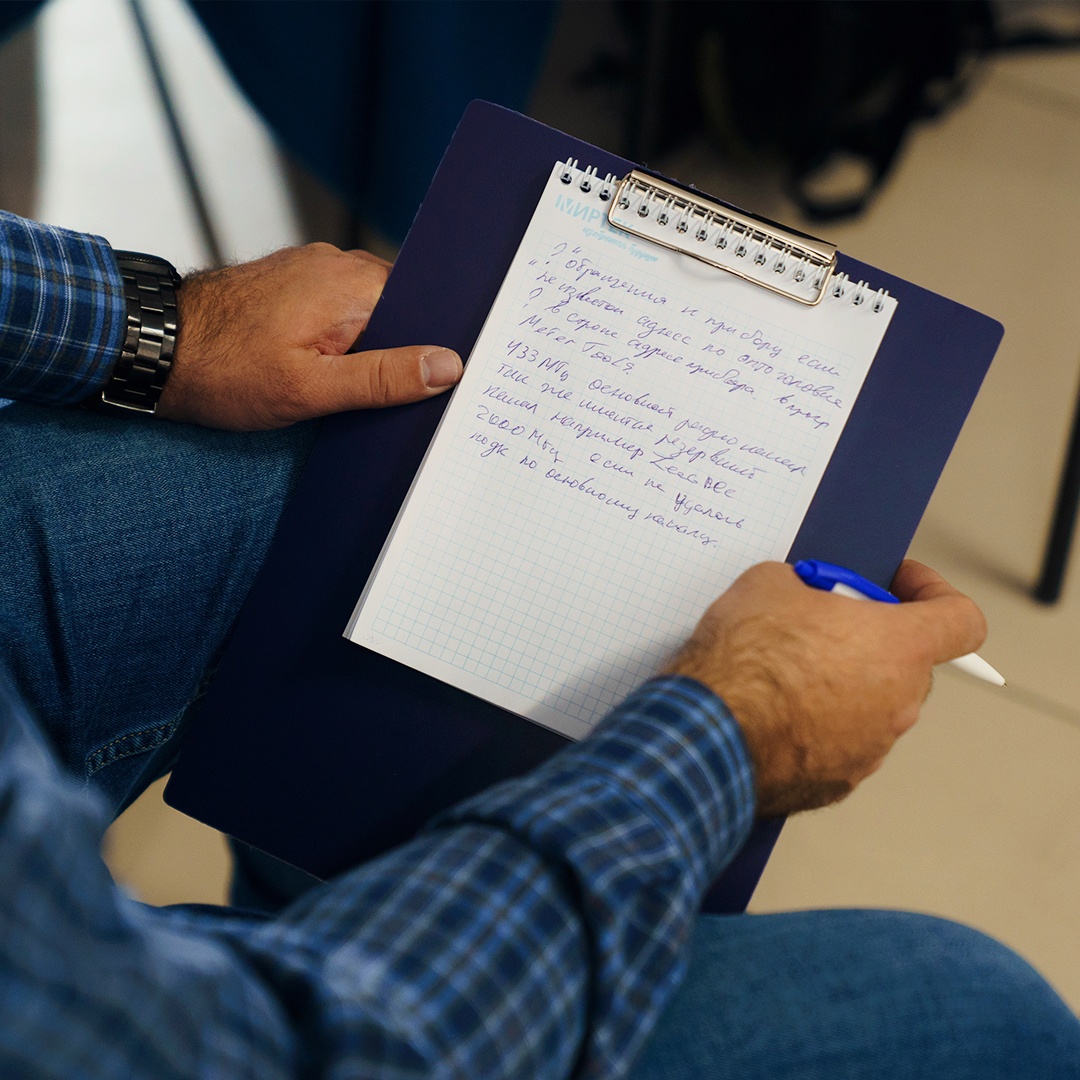 МИРТЕК
изобретая будущее
? "
" : Обращения к прибору если
не известен адрес по оптоголовке
? в строке адрес прибора в прогр
Meter Tools?
433 МГц основной радиоканал
так же имеется резервный
канал например
2400 МГц если не удалось
подк по основному каналу.